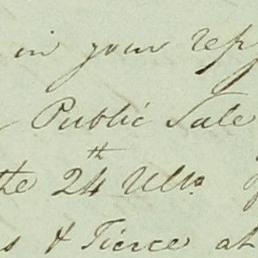 in your
Public Sale
the 24th Ulto.
& Tierce at